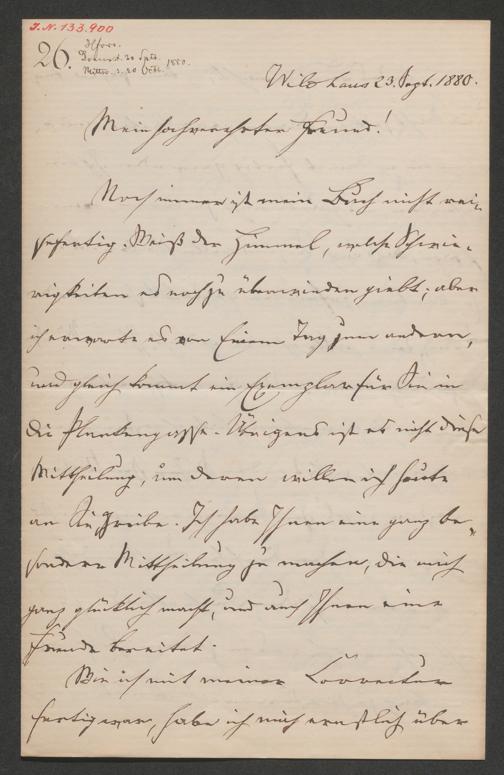 J.N. 133.900
26.
Wildhaus 23. Sept. 1880.
Mein hochverehrter Freund!
Noch immer ist mein Buch nicht rei-
sefertig. Weiß der Himmel, welche Schwie-
rigkeiten es noch zu überwinden giebt; aber
ich erwarte es von Einem Tag zum andern,
und gleich kommt ein Exemplar für Sie in
die Plankengasse. Übrigens ist es nicht diese
Mittheilung, um deren willen ich heute
an Sie schreibe. Ich habe Ihnen eine ganz be-
sondere Mittheilung zu machen, die mich
ganz glücklich macht, und auch Ihnen eine
Freude bereitet.
Wie ich mit meiner Correctur
fertig war, habe ich mich ernstlich über